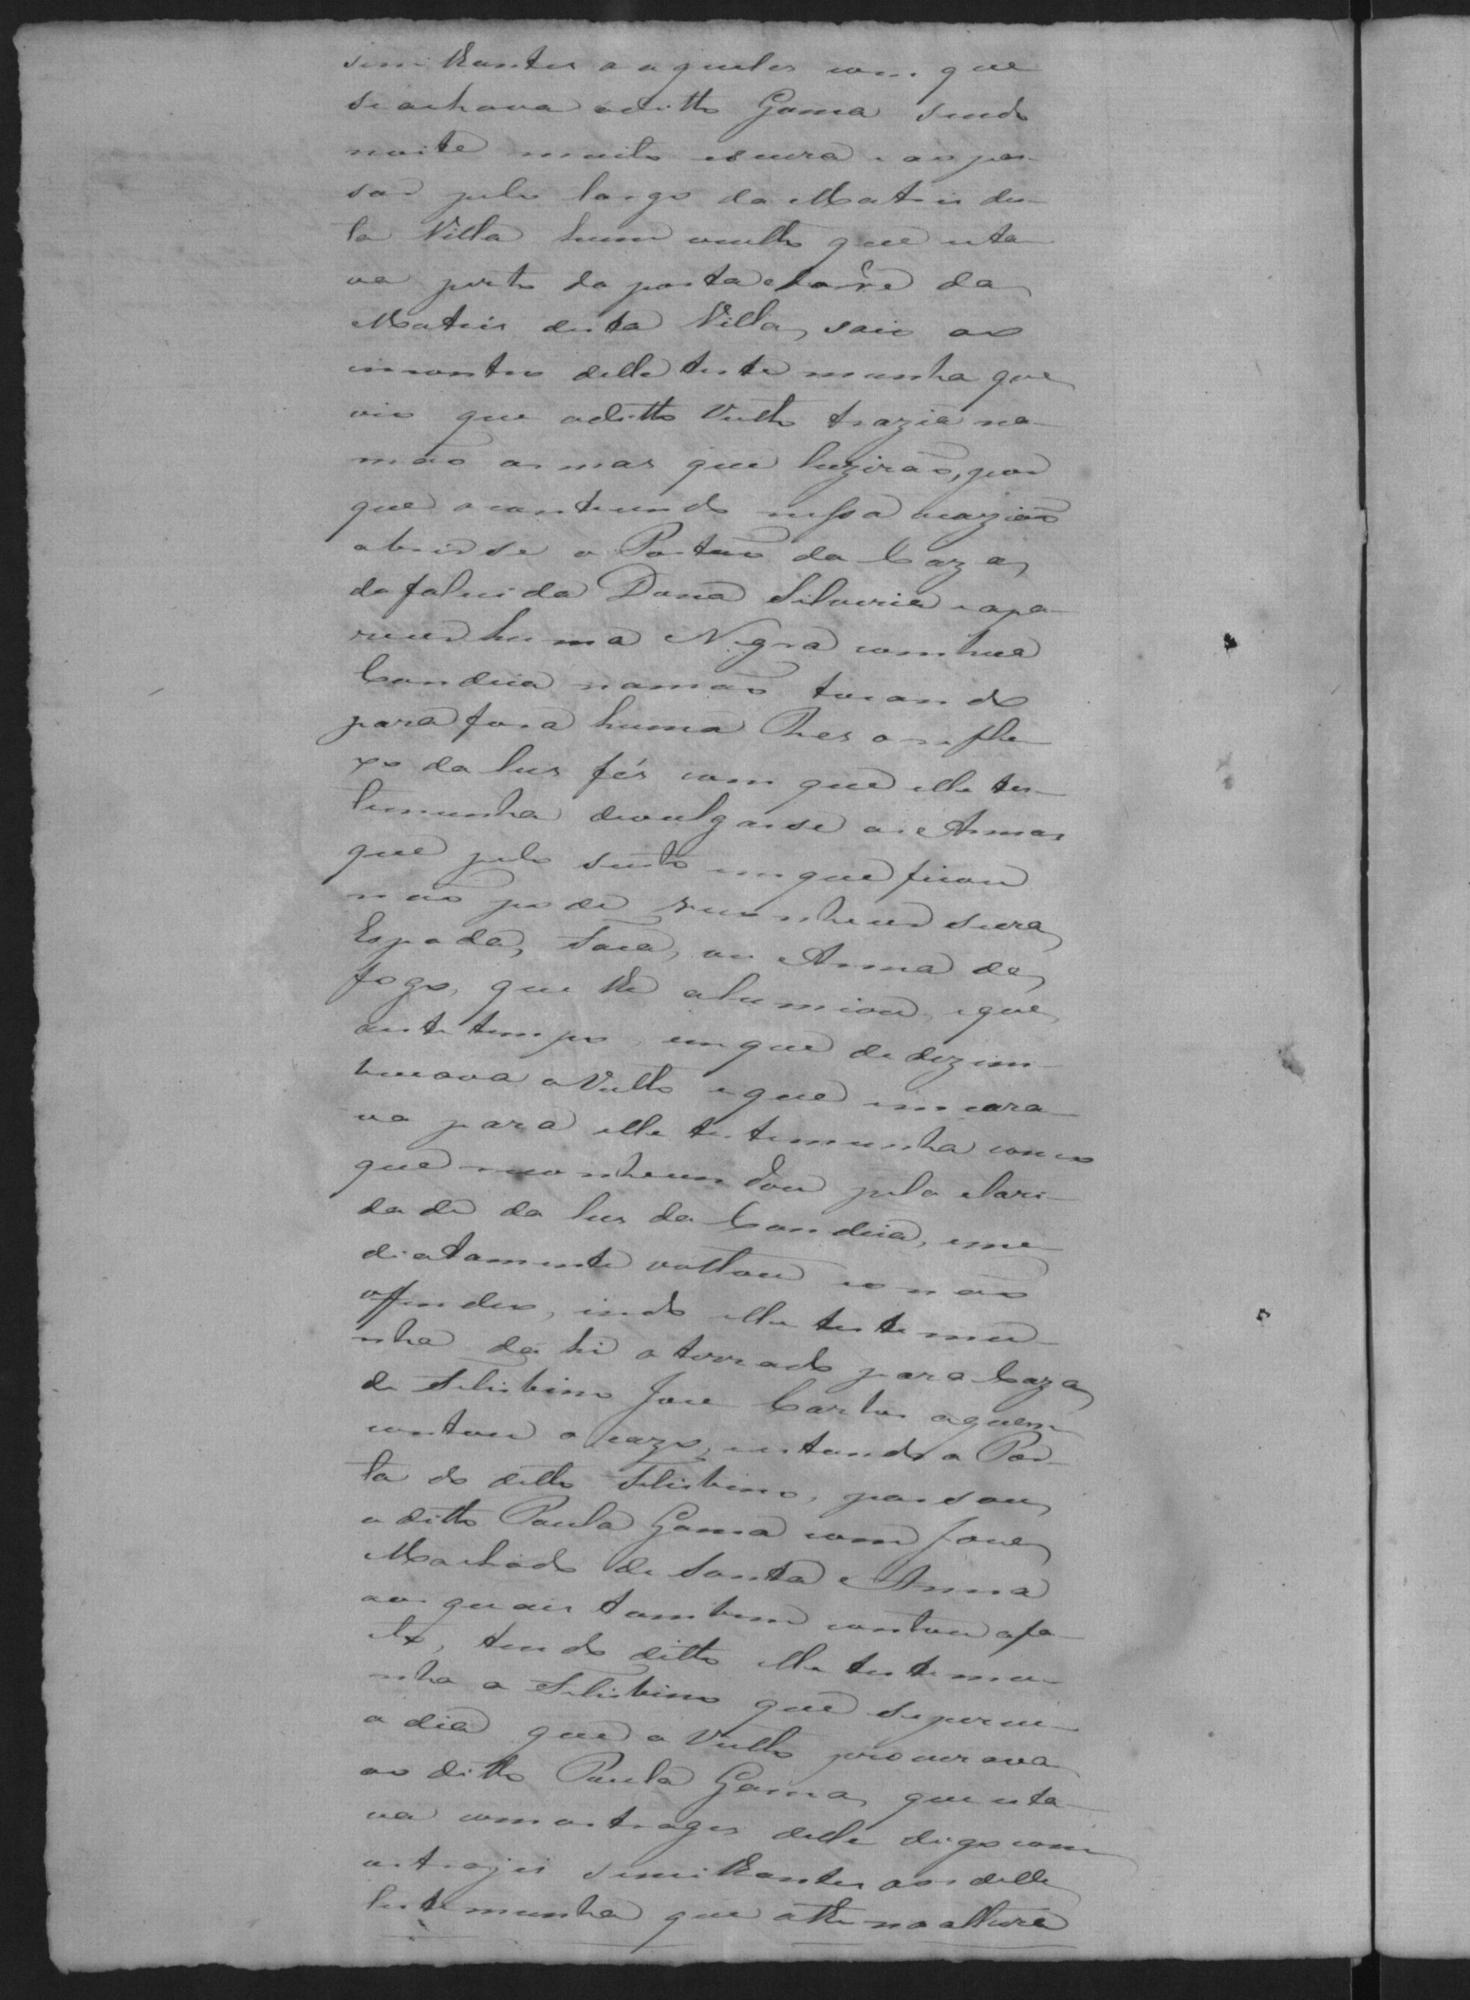 similhantes a aqueles com que
se achava o ditto Gama sendo
noite muito escura e ao pas-
sar pelo largo da Matris des-
ta Villa hum vulto que esta-
va perto da porta da
Matris desta Villa, saio ao
incontro delle testemunha que
vio que o ditto Vulto trazia na
mão armas que luzirão, por
que acontecendo nessa ocazião
abrir-se o Portão da Caza
da falecida Dona Silveria e apa-
receo huma Negra com hua
Candeia na mão tocando
para fora huma Res o refle-
xo da lus fés com que elle tes-
temunha divulgasse as Armas
que pelo susto em que ficou
não pode reconhecer se era
Espada, Faca, ou Arma de
fogo, que lhe alumiou, e que
neste tempo, em que
o Vulto e que incara-
va para elle testemunha como
que reconhecendo pela clari-
dade da lus da Candeia, ime-
diatamente voltou e o não
offendeo, indo elle testemu-
nha dahi aterrado para Caza
de Felisbino Jose Carlos a quem
contou o cazo, e estando a Por-
ta do ditto Felisbino, passou
o ditto Paula Gama com Jose
Machado de Santa Anna
aos quais tambem contou o fa-
cto, tendo ditto elle testemu-
nha a Felisbino que se persu-
adia que o Vulto procurava
ao ditto Paula Gama, que esta-
va com os trages delle digo com
os trajes similhantes aos delle
testemunha que athe na altura